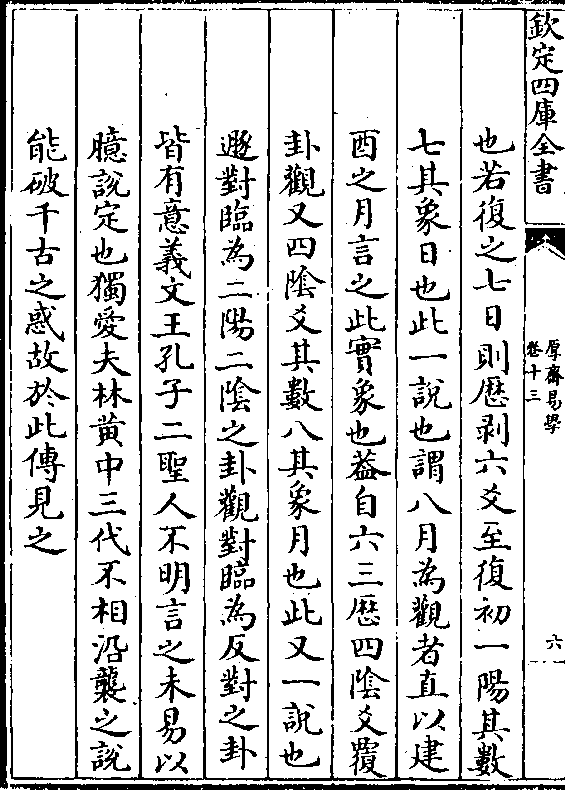 欽定四庫全書
厚齋易學
卷十三
六
也若復之七日則歴剥六爻至復初一陽其數
七其象日也此一說也謂八月為觀者直以建
酉之月言之此實象也葢自六三歴四陰爻覆
卦觀又四陰爻其數八其象月也此又一說也
遯對臨為二陽二陰之卦觀對臨為反對之卦
皆有意義文王孔子二聖人不明言之未易以
臆說定也獨愛夫林黄中三代不相沿襲之說
能破千古之惑故於此傳見之